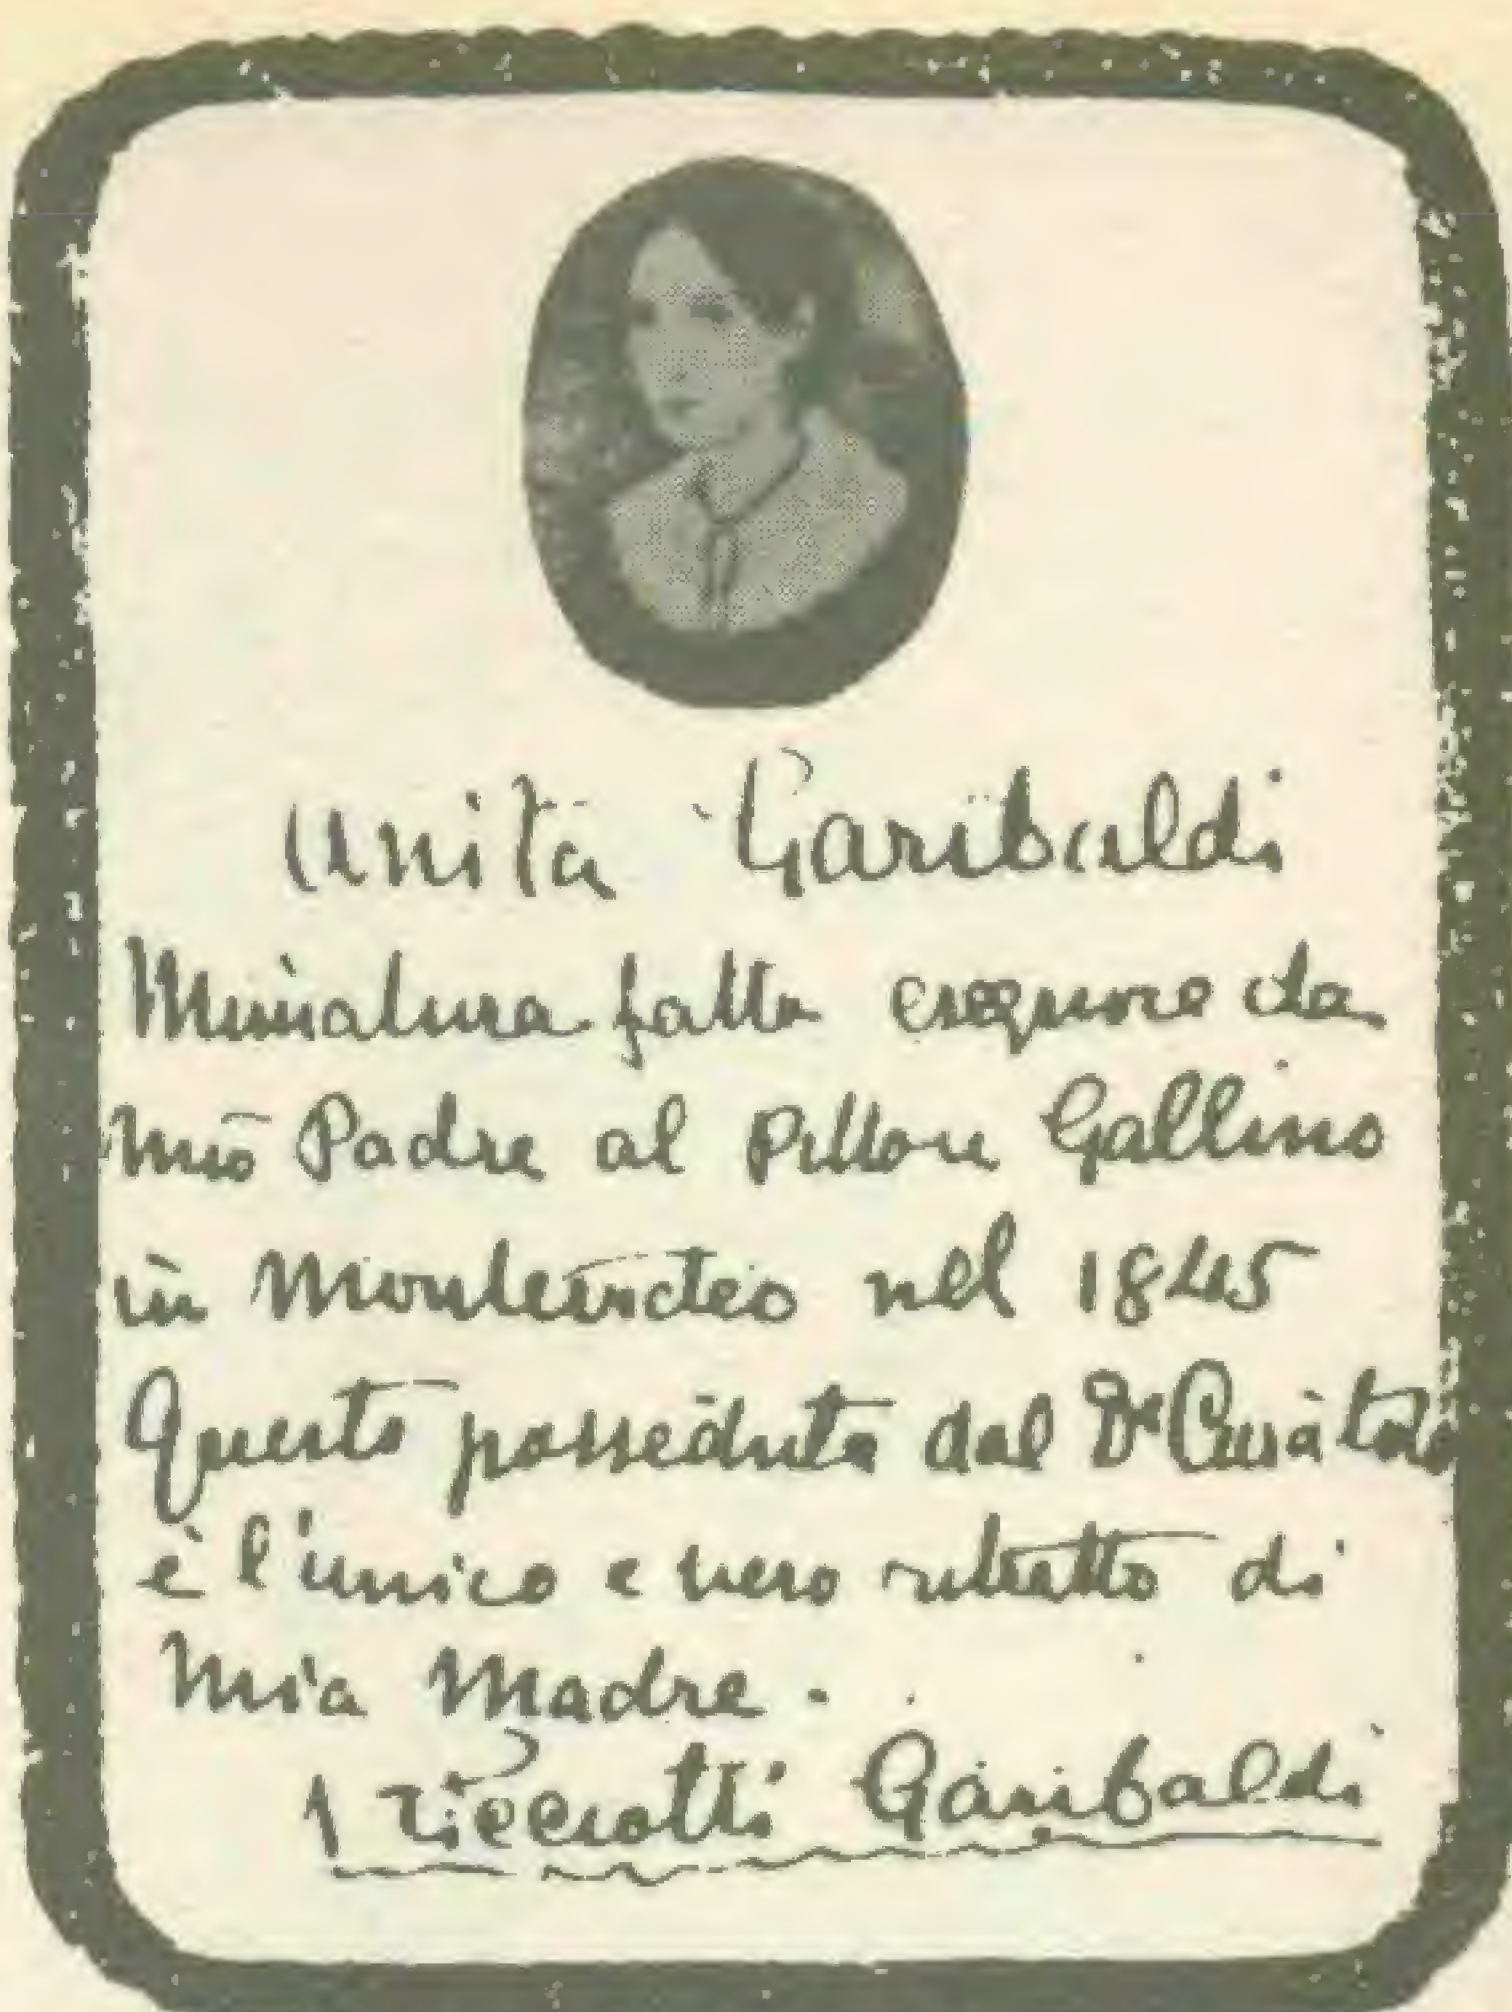 Anita Garibaldi
Miniatura fatta eseguire da
mio Padre al Pittore Gallino
in Montevideo nel 1845
Questo posseduto dal Dr Curàtolo
è l'unico e vero ritratto di
Mia Madre.
Ricciotti Garibaldi